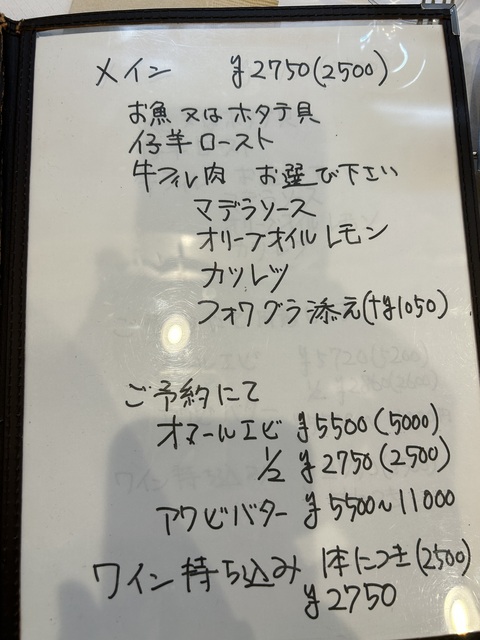 メイン ¥2750(2500)
お魚 又は ホタテ貝
仔羊ロースト
牛フィレ肉 お選び下さい
マデラソース
オリーブオイルレモン
カツレツ
フォワグラ添え(+¥1050)
ご予約にて
オマールエビ ¥5500(5000)
1/2 ¥2750(2500)
アワビバター ¥5500~11000
ワイン持ち込み 1本につき(2500)
¥2750